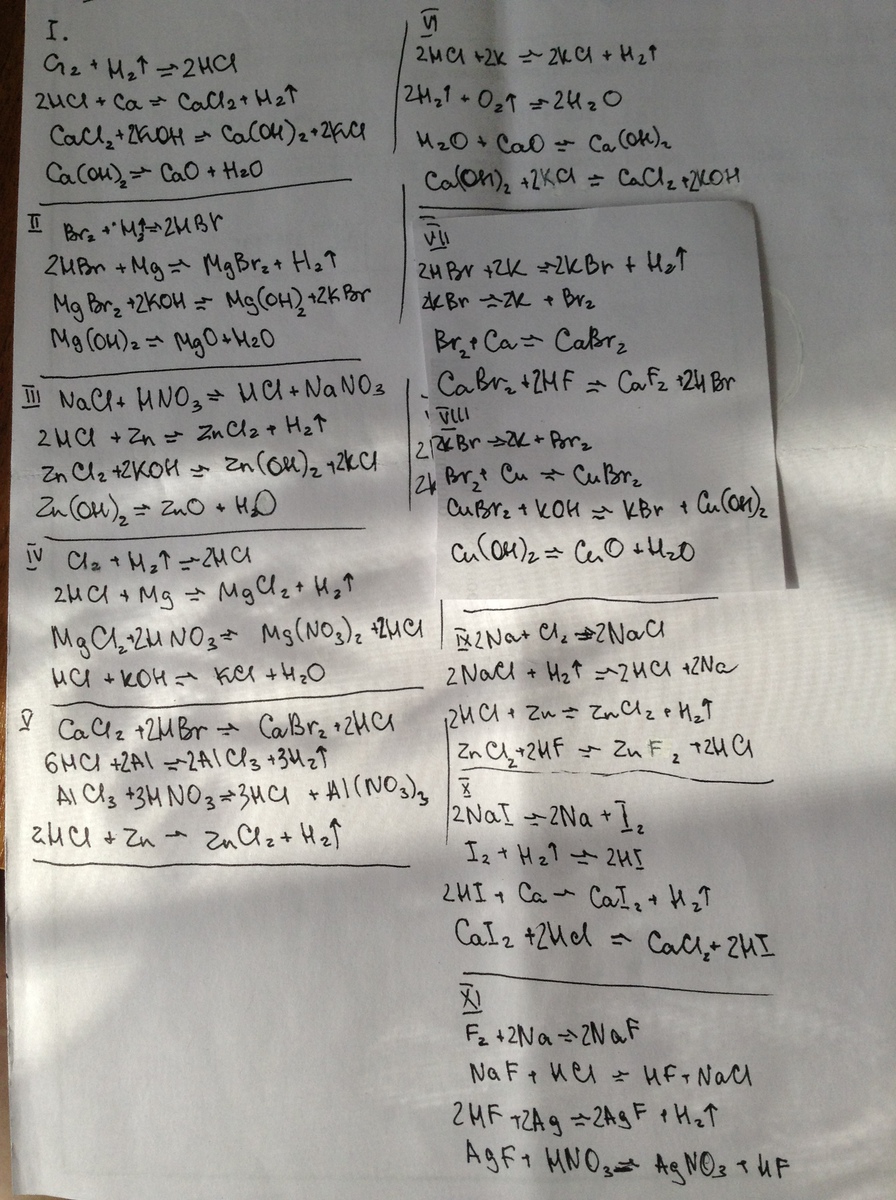 I.
Cl2 + H2↑ = 2HCl
2HCl + Ca = CaCl2 + H2↑
CaCl2 + 2KOH = Ca(OH)2 + 2KCl
Ca(OH)2 = CaO + H2O
II
Br2 + H2↑ = 2HBr
2HBr + Mg = MgBr2 + H2↑
MgBr2 + 2KOH = Mg(OH)2 + 2KBr
Mg(OH)2 = MgO + H2O
III NaCl + HNO3 = HCl + NaNO3
2HCl + Zn = ZnCl2 + H2↑
ZnCl2 + 2KOH = Zn(OH)2 + 2KCl
Zn(OH)2 = ZnO + H2O
IV Cl2 + H2↑ = 2HCl
2HCl + Mg = MgCl2 + H2↑
MgCl2 + 2HNO3 = Mg(NO3)2 + 2HCl
HCl + KOH = KCl + H2O
V CaCl2 + 2HBr = CaBr2 + 2HCl
6HCl + 2Al = 2AlCl3 + 3H2↑
AlCl3 + 3HNO3 = 3HCl + Al(NO3)3
2HCl + Zn = ZnCl2 + H2↑
VI
2HCl + 2K = 2KCl + H2↑
2H2↑ + O2↑ = 2H2O
H2O + CaO = Ca(OH)2
Ca(OH)2 + 2KCl = CaCl2 + 2KOH
VII
2HBr + 2K = 2KBr + H2↑
2KBr = 2K + Br2
Br2 + Ca = CaBr2
CaBr2 + 2HF = CaF2 + 2HBr
VIII
2KBr = 2K + Br2
Br2 + Cu = CuBr2
CuBr2 + KOH = KBr + Cu(OH)2
Cu(OH)2 = CuO + H2O
IX 2Na + Cl2 = 2NaCl
2NaCl + H2↑ = 2HCl + 2Na
2HCl + Zn = ZnCl2 + H2↑
ZnCl2 + 2HF = ZnF2 + 2HCl
X
2NaI = 2Na + I2
I2 + H2↑ = 2HI
2HI + Ca = CaI2 + H2↑
CaI2 + 2HCl = CaCl2 + 2HI
XI
F2 + 2Na = 2NaF
NaF + HCl = HF + NaCl
2HF + 2Ag = 2AgF + H2↑
AgF + HNO3 = AgNO3 + HF